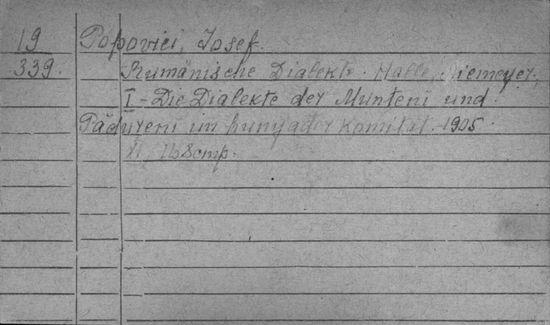 19 Popovici, Josef.
339. Rumänische Dialekte. Halle, Niemeyer,
I - Die Dialekte der Munteni und
Pădureni im hunyader Komitat. 1905
168 cmp.